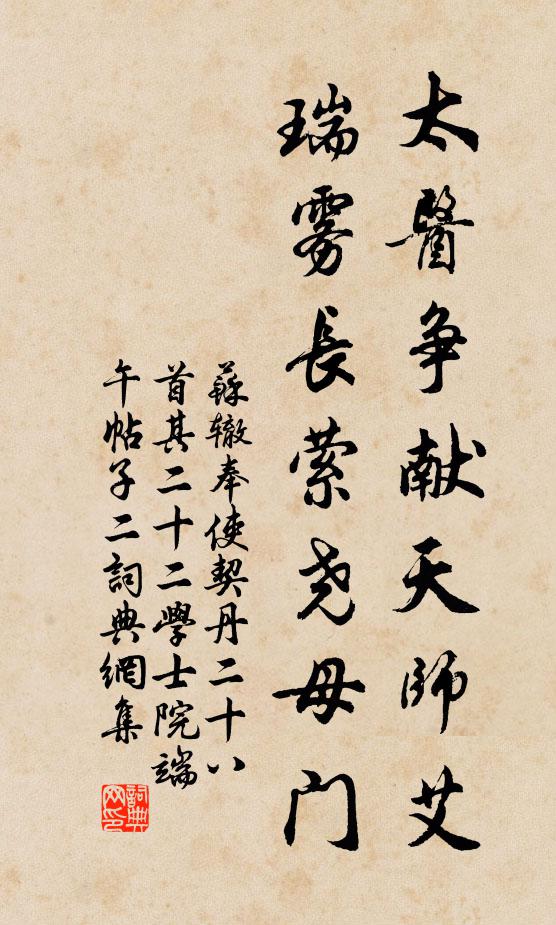 太醫争献天師艾
瑞雾長萦尧母门
蘇辙奉使契丹二十八
首其二十二學士院端
午帖子二詞典網集
詞典网印